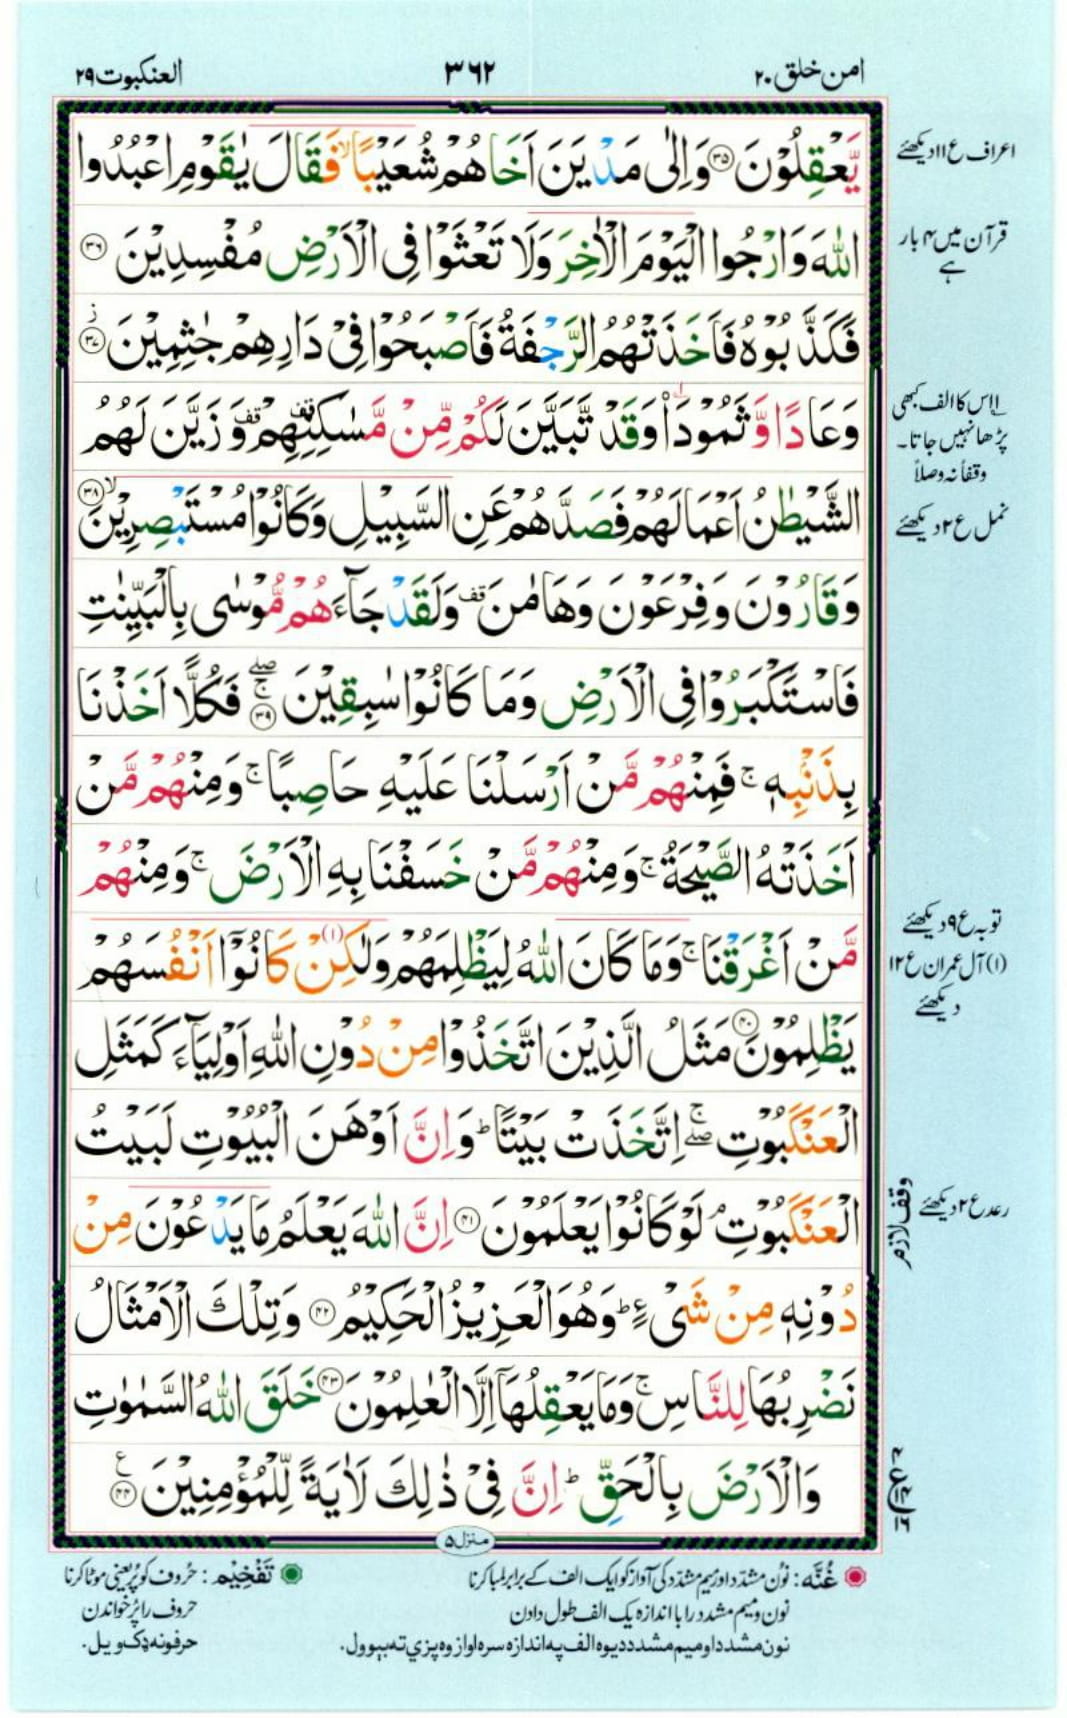 امن خلق ۲۰
۳۶۲
العنکبوت ۲۹
یَّعْقِلُوْنَ ﴿۳۵﴾ وَاِلٰی مَدْیَنَ اَخَاهُمْ شُعَیْبًا ۙ فَقَالَ یٰقَوْمِ اعْبُدُوا
اللّٰهَ وَارْجُوا الْیَوْمَ الْاٰخِرَ وَلَا تَعْثَوْا فِی الْاَرْضِ مُفْسِدِیْنَ ﴿۳۶﴾
فَكَذَّبُوْهُ فَاَخَذَتْهُمُ الرَّجْفَةُ فَاَصْبَحُوْا فِیْ دَارِهِمْ جٰثِمِیْنَ ﴿۳۷﴾ ز
وَعَادًا وَّثَمُوْدَا۟ وَقَدْ تَّبَیَّنَ لَكُمْ مِّنْ مَّسٰكِنِهِمْ قف وَ زَیَّنَ لَهُمُ
الشَّیْطٰنُ اَعْمَالَهُمْ فَصَدَّهُمْ عَنِ السَّبِیْلِ وَكَانُوْا مُسْتَبْصِرِیْنَ ۙ﴿۳۸﴾
وَقَارُوْنَ وَفِرْعَوْنَ وَهَامٰنَ قف وَلَقَدْ جَآءَهُمْ مُّوْسٰی بِالْبَیِّنٰتِ
فَاسْتَكْبَرُوْا فِی الْاَرْضِ وَمَا كَانُوْا سٰبِقِیْنَ ﴿۳۹﴾ ج صلے فَكُلًّا اَخَذْنَا
بِذَنْۢبِهٖ ۚ فَمِنْهُمْ مَّنْ اَرْسَلْنَا عَلَیْهِ حَاصِبًا ۚ وَمِنْهُمْ مَّنْ
اَخَذَتْهُ الصَّیْحَةُ ۚ وَمِنْهُمْ مَّنْ خَسَفْنَا بِهِ الْاَرْضَ ۚ وَمِنْهُمْ
مَّنْ اَغْرَقْنَا ۚ وَمَا كَانَ اللّٰهُ لِیَظْلِمَهُمْ وَلٰكِنْ (۱) كَانُوْۤا اَنْفُسَهُمْ
یَظْلِمُوْنَ ﴿۴۰﴾ مَثَلُ الَّذِیْنَ اتَّخَذُوْا مِنْ دُوْنِ اللّٰهِ اَوْلِیَآءَ كَمَثَلِ
الْعَنْكَبُوْتِ ج صلے اِتَّخَذَتْ بَیْتًا ؕ وَاِنَّ اَوْهَنَ الْبُیُوْتِ لَبَیْتُ
الْعَنْكَبُوْتِ ۘ لَوْ كَانُوْا یَعْلَمُوْنَ ﴿۴۱﴾ اِنَّ اللّٰهَ یَعْلَمُ مَا یَدْعُوْنَ مِنْ
دُوْنِهٖ مِنْ شَیْءٍ ؕ وَهُوَ الْعَزِیْزُ الْحَكِیْمُ ﴿۴۲﴾ وَتِلْكَ الْاَمْثَالُ
نَضْرِبُهَا لِلنَّاسِ ۚ وَمَا یَعْقِلُهَاۤ اِلَّا الْعٰلِمُوْنَ ﴿۴۳﴾ خَلَقَ اللّٰهُ السَّمٰوٰتِ
وَالْاَرْضَ بِالْحَقِّ ؕ اِنَّ فِیْ ذٰلِكَ لَاٰیَةً لِّلْمُؤْمِنِیْنَ ﴿۴۴﴾ ع
اعراف ع ۱۱ دیکھئے
قرآن میں ۴ بار
ہے
۱ اس کا الف کبھی
پڑھا نہیں جاتا۔
وقفاً نہ وصلاً
نمل ع ۲ دیکھئے
توبہ ع ۹ دیکھئے
(۱) آل عمران ع ۱۲
دیکھئے
وقف لازم
رعد ع ۲ دیکھئے
ع
منزل ۵
غُنَّه: نوُن مشدّد اور میم مشدّد کی آواز کو ایک الف کے برابر لمبا کرنا
نون و میم مشدد را با اندازہ یک الف طول دادن
نون مشدد او میم مشدد د یوہ الف په اندازه سره اواز وه پزي ته بیوول.
تَفْخِیْم: حُروف کو پُر یعنی موٹا کرنا
حروف را پُر خواندن
حرفونه ډک ویل.